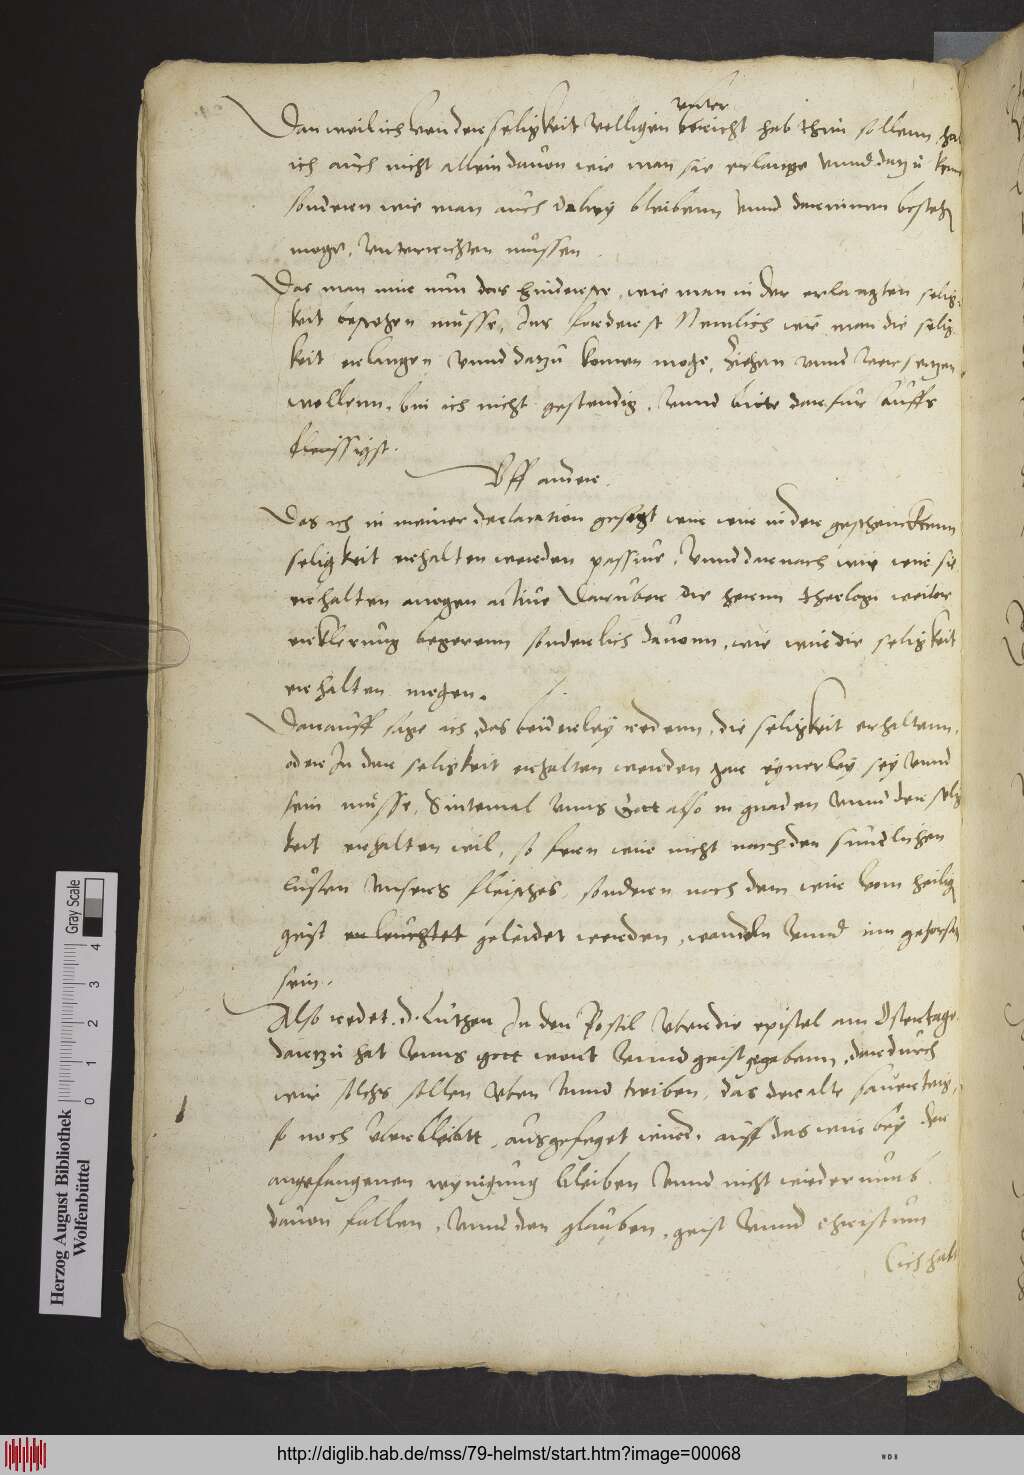 unter
Dan weil ich von der seligkeit velligen bericht hab thun sollenn, hab
ich auch nicht allein dauon wie man sie erlange vnnd dartzu kome
sonderen wie man auch dabey bleibenn vnnd darinnen besteh
moge, vnterrichten müssen
Das man mir nun das hinderste, wie man in der erlangten selig
keit bestehen müsse, Ins forderst Nemlich wie man die selig
keit erlangen vnnd dartzu komen moge, ziehen vnnd versetzen
wollenn, bin ich nicht gestendig, vnnd bitte darfur auffs
fleissigst.
Vff ander
Das ich in meiner declaration gesetzt wie wir in der geschenckten
seligkeit erhalten werden passiue, vnnd darnach wie wir sie
erhalten mogen actiue Daruber die herrn theologi weiter
erklerung begerenn sonderlich dauonn, wie wir die seligkeit
erhalten mogen.
Darauff sage ich, das beiderley redenn, die seligkeit erhaltenn,
oder In der seligkeit erhalten werden gar eynerley sey vnnd
sein müsse, Sintemal vnns Gott also in gnaden vnnd der selig
keit erhalten wil, so fern wir nicht nach den sundlichen
lüsten vnsers fleisches, sonderen nach dem wir vom heilig
geist erleuchtet geleidet werden, wandeln vnnd im gehorsa
sein.
Also redet. d. Luther In der Postil vber die epistel am Ostertage
dartzu hat vnns gott wort vnnd geist gegebenn, dardurch
wir solchs sollen vben vnnd treiben, das der alte sauerteig,
so noch vberbleibtt, ausgefeget werd, auff das wir bey der
angefangenen reynigung bleiben vnnd nicht wiederumb
dauon fallen, vnnd den glauben, geist vnnd christum
(ich halt
Herzog August Bibliothek
Wolfenbüttel
Gray Scale
0 1 2 3 4
http://diglib.hab.de/mss/79-helmst/start.htm?image=00068